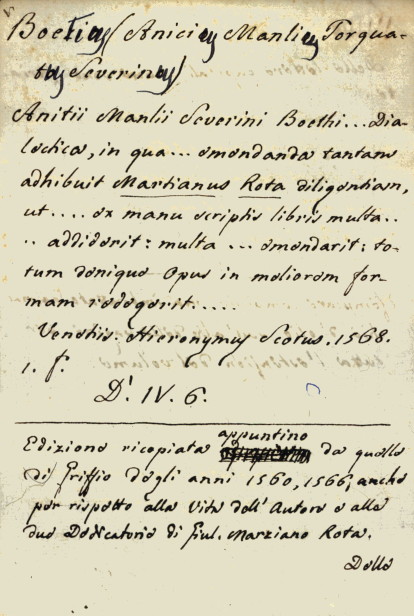 Boetius (Anicius Manlius Torqua-
tus Severinus)
Anitii Manlii Severini Boethi... Dia-
lectica, in qua... emendanda tantam
adhibuit Martianus Rota diligentiam,
ut.... ex manu scriptis libris multa..
.. addiderit: multa ... emendarit: to-
tum denique Opus in meliorem for-
mam redegerit.....
Venetiis. Hieronymus Scotus. 1568.
1. f.
D'. IV. 6.
appuntino
Edizione ricopiata da quelle
di Griffio degli anni 1560, 1566, anche
per rispetto alla Vita dell'Autore e alle
due Dedicatorie di Giul. Marziano Rota.
Delle